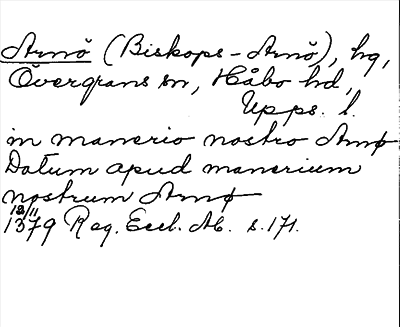 Arnö (Biskops-Arnö), hg,
Övergrans sn, Håbo hd,
Upps. l.
in manerio nostro Arnø
Datum apud manerium
nostrum Arnø
18/11
1379 Reg. Eccl. Ab. s. 171.